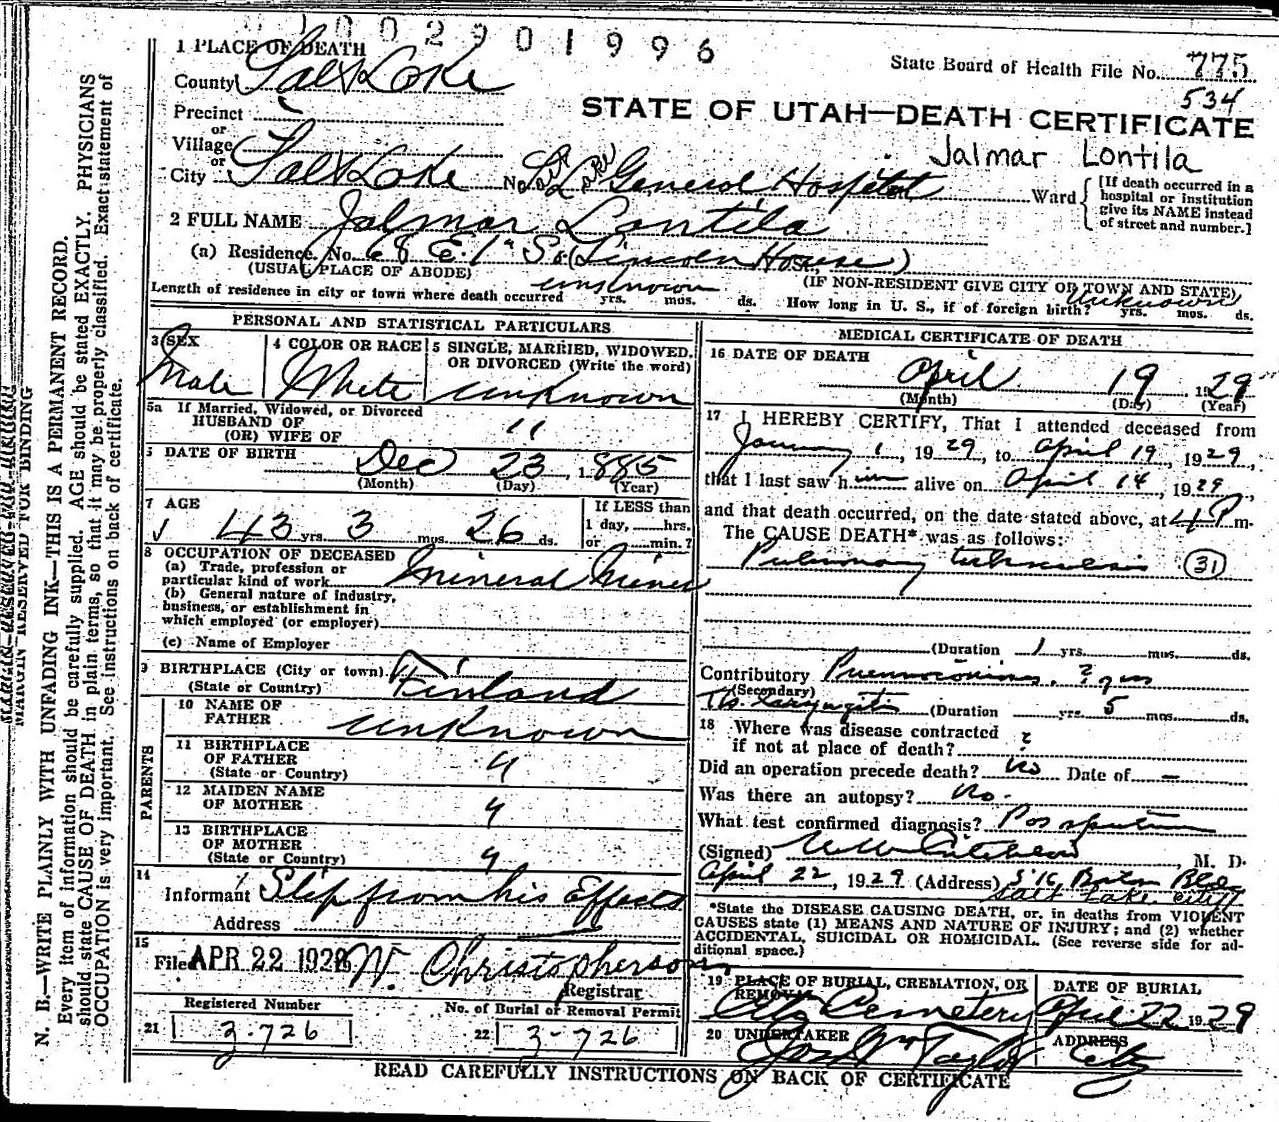 0 1 0 0 2 9 0 1 9 9 6
1 PLACE OF DEATH
State Board of Health File No. 775
534
County Salt Lake
STATE OF UTAH—DEATH CERTIFICATE
Precinct
or
Village
or
Jalmar Lontila
City Salt Lake No. Salt Lake General Hospital Ward
[If death occurred in a hospital or institution give its NAME instead of street and number.]
2 FULL NAME Jalmar Lontila
(a) Residence. No. 68 E. 1st So. (Lincoln House) St.,
(USUAL PLACE OF ABODE) (IF NON-RESIDENT GIVE CITY OR TOWN AND STATE)
Length of residence in city or town where death occurred unknown yrs. mos. ds. How long in U. S., if of foreign birth? Unknown yrs. mos. ds.
PERSONAL AND STATISTICAL PARTICULARS
3 SEX Male
4 COLOR OR RACE White
5 SINGLE, MARRIED, WIDOWED, OR DIVORCED (Write the word) unknown
5a If Married, Widowed, or Divorced
HUSBAND OF
(OR) WIFE OF "
6 DATE OF BIRTH Dec 23, 1885
(Month) (Day) (Year)
7 AGE 43 yrs. 3 mos. 26 ds.
If LESS than
1 day, hrs.
or min.?
8 OCCUPATION OF DECEASED
(a) Trade, profession or
particular kind of work Mineral Miner
(b) General nature of industry,
business, or establishment in
which employed (or employer)
(c) Name of Employer
9 BIRTHPLACE (City or town)
(State or Country) Finland
PARENTS
10 NAME OF
FATHER unknown
11 BIRTHPLACE
OF FATHER "
(State or Country)
12 MAIDEN NAME
OF MOTHER "
13 BIRTHPLACE
OF MOTHER "
(State or Country)
14
Informant Slip from his Effects
Address
15
Filed APR 22 1929 W. Christopherson
Registrar
Registered Number No. of Burial or Removal Permit
21 3-726 22 3-726
MEDICAL CERTIFICATE OF DEATH
16 DATE OF DEATH
April 19 1929
(Month) (Day) (Year)
17 I HEREBY CERTIFY, That I attended deceased from
January 1, 1929, to April 19, 1929,
that I last saw him alive on April 14, 1929,
and that death occurred, on the date stated above, at 4 P m.
The CAUSE DEATH* was as follows:
Pulmonary tuberculosis (31)
(Duration 1 yrs. mos. ds.
Contributory Pneumoconiosis. ? yrs
(Secondary)
Tb. Laryngitis (Duration yrs. 5 mos. ds.
18 Where was disease contracted
if not at place of death? ?
Did an operation precede death? No Date of —
Was there an autopsy? No.
What test confirmed diagnosis? Pos sputum
(Signed) , M. D.
April 22, 1929 (Address) 516 Bldg
Salt Lake City
*State the DISEASE CAUSING DEATH, or, in deaths from VIOLENT
CAUSES state (1) MEANS AND NATURE OF INJURY; and (2) whether
ACCIDENTAL, SUICIDAL OR HOMICIDAL. (See reverse side for ad-
ditional space.)
19 PLACE OF BURIAL, CREMATION, OR REMOVAL DATE OF BURIAL
City Cemetery April 22 1929
20 UNDERTAKER ADDRESS
Jos. Wm Taylor City
READ CAREFULLY INSTRUCTIONS ON BACK OF CERTIFICATE
MARGIN RESERVED FOR BINDING
N. B.—WRITE PLAINLY WITH UNFADING INK—THIS IS A PERMANENT RECORD.
Every item of information should be carefully supplied. AGE should be stated EXACTLY. PHYSICIANS
should state CAUSE OF DEATH in plain terms, so that it may be properly classified. Exact statement of
OCCUPATION is very important. See instructions on back of certificate.